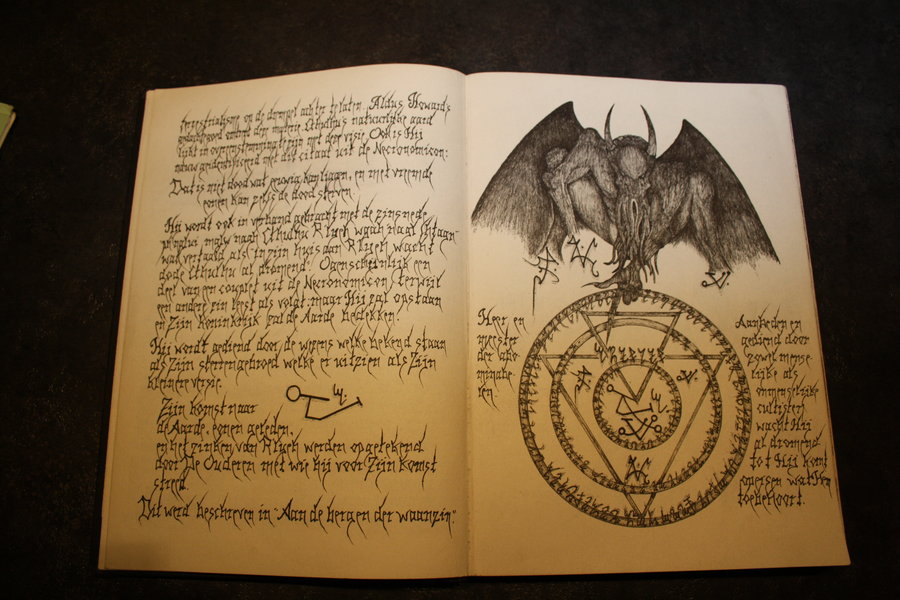 terrestrialisme op de drempel achter te laten. Aldus Howard's
gedachtegoed omtrent deze materie. Cthulhu's natuurlijke aard
lijkt in overeenstemming te zijn met deze visie. Ook is Hij
nauw geïdentificeerd met dit citaat uit de Necronomicon:
Dat is niet dood wat eeuwig kan liggen, en met vreemde
eonen kan zelfs de dood sterven
Hij wordt ook in verband gebracht met de zinsnede
ph'nglui mglw'naah Cthulhu R'lyeh wgah'nagl fhtagn
wat vertaald als in zijn huis aan R'lyeh wacht
dode Cthulhu al dromend. Ogenschijnlijk een
deel van een couplet uit de Necronomicon, terwijl
een andere zin leest als volgt, maar Hij zal opstaan
en Zijn Koninkrijk zal de Aarde bedekken.
Hij wordt gediend door de wezens welke bekend staan
als Zijn sterrengebroed welke er uitzien als Zijn
kleinere versie.
Zijn komst naar
de Aarde, eonen geleden,
en het zinken van R'lyeh werden opgetekend
door De Ouderen met wie hij voor Zijn komst
streed.
Dit werd beschreven in "Aan de bergen der waanzin".
Heer en
meester
der abo-
minatie-
en.
Aanbeden en
gediend door
zowel mense-
lijke als
onmenselijke
cultisten
wacht Hij
al dromend
tot Hij komt
opeisen wat Hem
toebehoort.